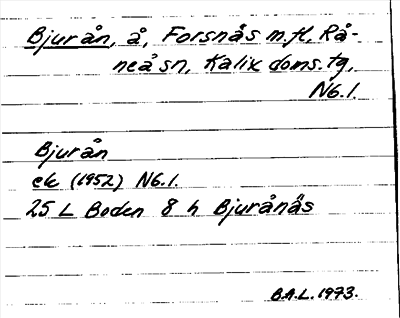 Bjurån, å, Forsnäs m.fl., Rå-
neå sn, Kalix doms. tg,
Nb.1.
Bjurån
ek (1952) Nb.1.
25 L Boden 8 h Bjurånäs
B.A.L. 1973.